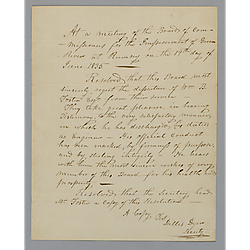 At a meeting of the Board of Com-
missioners for the Improvement of Green
River at Rumsey on the 19th day of
June 1835
Resolved, that this Board most
sincerely regret the departure of Wm B.
Foster Esqr from them
They take great pleasure in bearing
testimony, to the very satisfactory manner
in which he has discharged his duties
as engineer - his official conduct
has been marked, by firmness of purpose
and by sterling integrity - He leaves
with him the most sincere wishes of every
member of this Board for his health and
prosperity -
Resolved, that the Secretary hand
Mr Foster a copy of this Resolution
A Copy